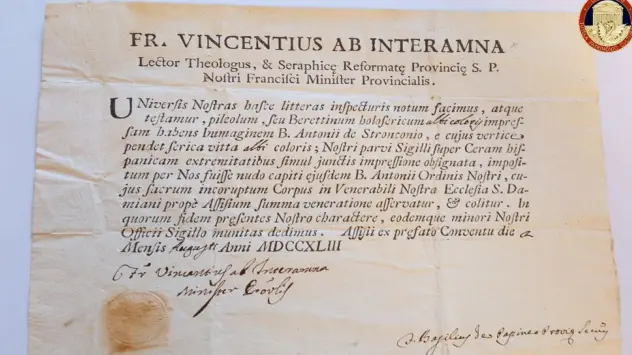 FR. VINCENTIUS AB INTERAMNA
Lector Theologus, & Seraphicę Reformatę Provincię S. P.
Nostri Francisci Minister Provincialis.
UNiversis Nostras hasce litteras inspecturis notum facimus, atque
testamur, pileolum, seu Berettinum holosericum albi coloris impres-
sam habens Immaginem B. Antonii de Stronconio, e cujus vertice
pendet serica vitta albi coloris; Nostri parvi Sigilli super Ceram his-
panicam extremitatibus simul junctis impressione obsignata, imposi-
tum per Nos fuisse nudo capiti ejusdem B. Antonii Ordinis Nostri, cu-
jus sacrum incoruptum Corpus in Venerabili Nostra Ecclesia S. Da-
miani propè Assisium summa veneratione asservatur, & colitur. In
quorum fidem presentes Nostro charactere, eodemque minori Nostri
Officii Sigillo munitas dedimus. Assisii ex prefato Conventu die
Mensis Augusti Anni MDCCXLIII
Fr Vincentius ab Interamna
Minister Provlis